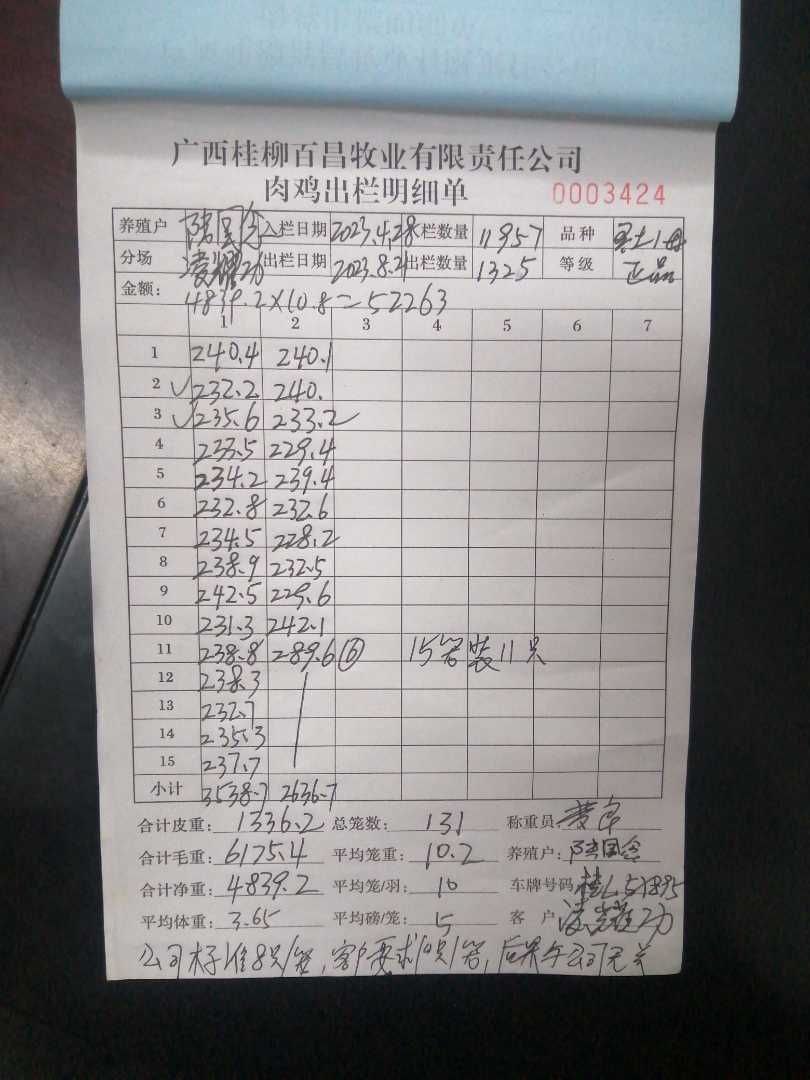 广西桂柳百昌牧业有限责任公司
肉鸡出栏明细单 0003424
养殖户 入栏日期 2023.4.28 栏数量 11957 品种
分场 凌耀功 出栏日期 2023.8.21 出栏数量 1325 等级 正品
金额: 4839.2×10.8=52263
1 2 3 4 5 6 7
1 240.4 240.1
2 232.2 240.
3 235.6 233.2
4 233.5 229.4
5 234.2 239.4
6 232.8 232.6
7 234.5 228.2
8 238.9 232.5
9 242.5 229.6
10 231.3 242.1
11 238.8 289.6 ⑥ 15笼装11只
12 238.3
13 232.7
14 235.3
15 237.7
小计 3538.7 2636.7
合计皮重: 1336.2 总笼数: 131 称重员
合计毛重: 6175.4 平均笼重: 10.2 养殖户:
合计净重: 4839.2 平均笼/羽: 10 车牌号码 桂L51895
平均体重: 3.65 平均磅/笼: 5 客户 凌耀功
公司标准8只/笼,客户要求10只/笼,后果与公司无关